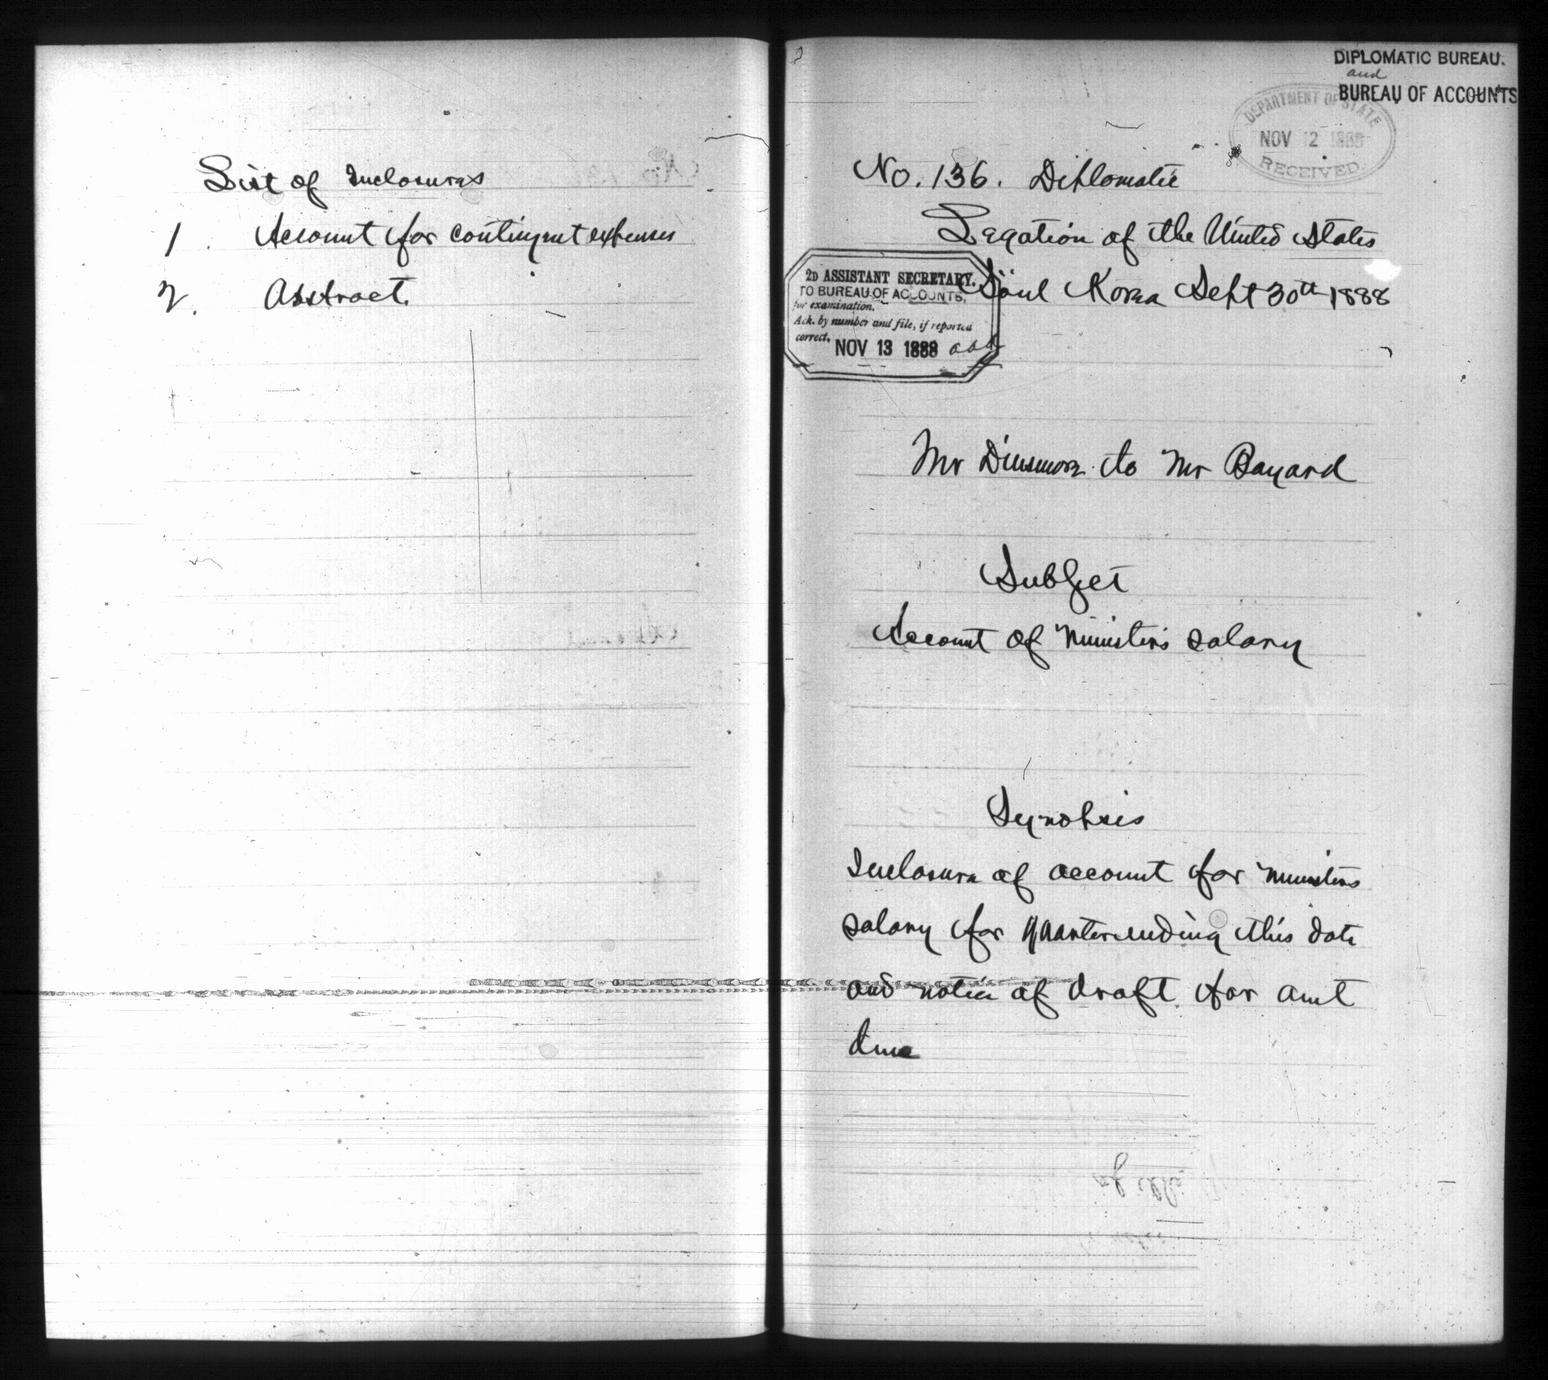 List of Inclosures
1. Account for contingent expenses
2. Abstract.
2
DIPLOMATIC BUREAU.
and
BUREAU OF ACCOUNTS
DEPARTMENT OF STATE
NOV 12 1888
RECEIVED.
No. 136. Diplomatic
Legation of the United States
Söul Korea Sept 30th 1888
2D ASSISTANT SECRETARY.
TO BUREAU OF ACCOUNTS,
for examination.
Ack. by number and file, if reported
correct.
NOV 13 1888
Mr Dinsmore to Mr Bayard
Subject
Account of Ministers salary
Synopsis
Inclosure of account for Ministers
salary for quarter ending this date
and notice of draft for amt
due